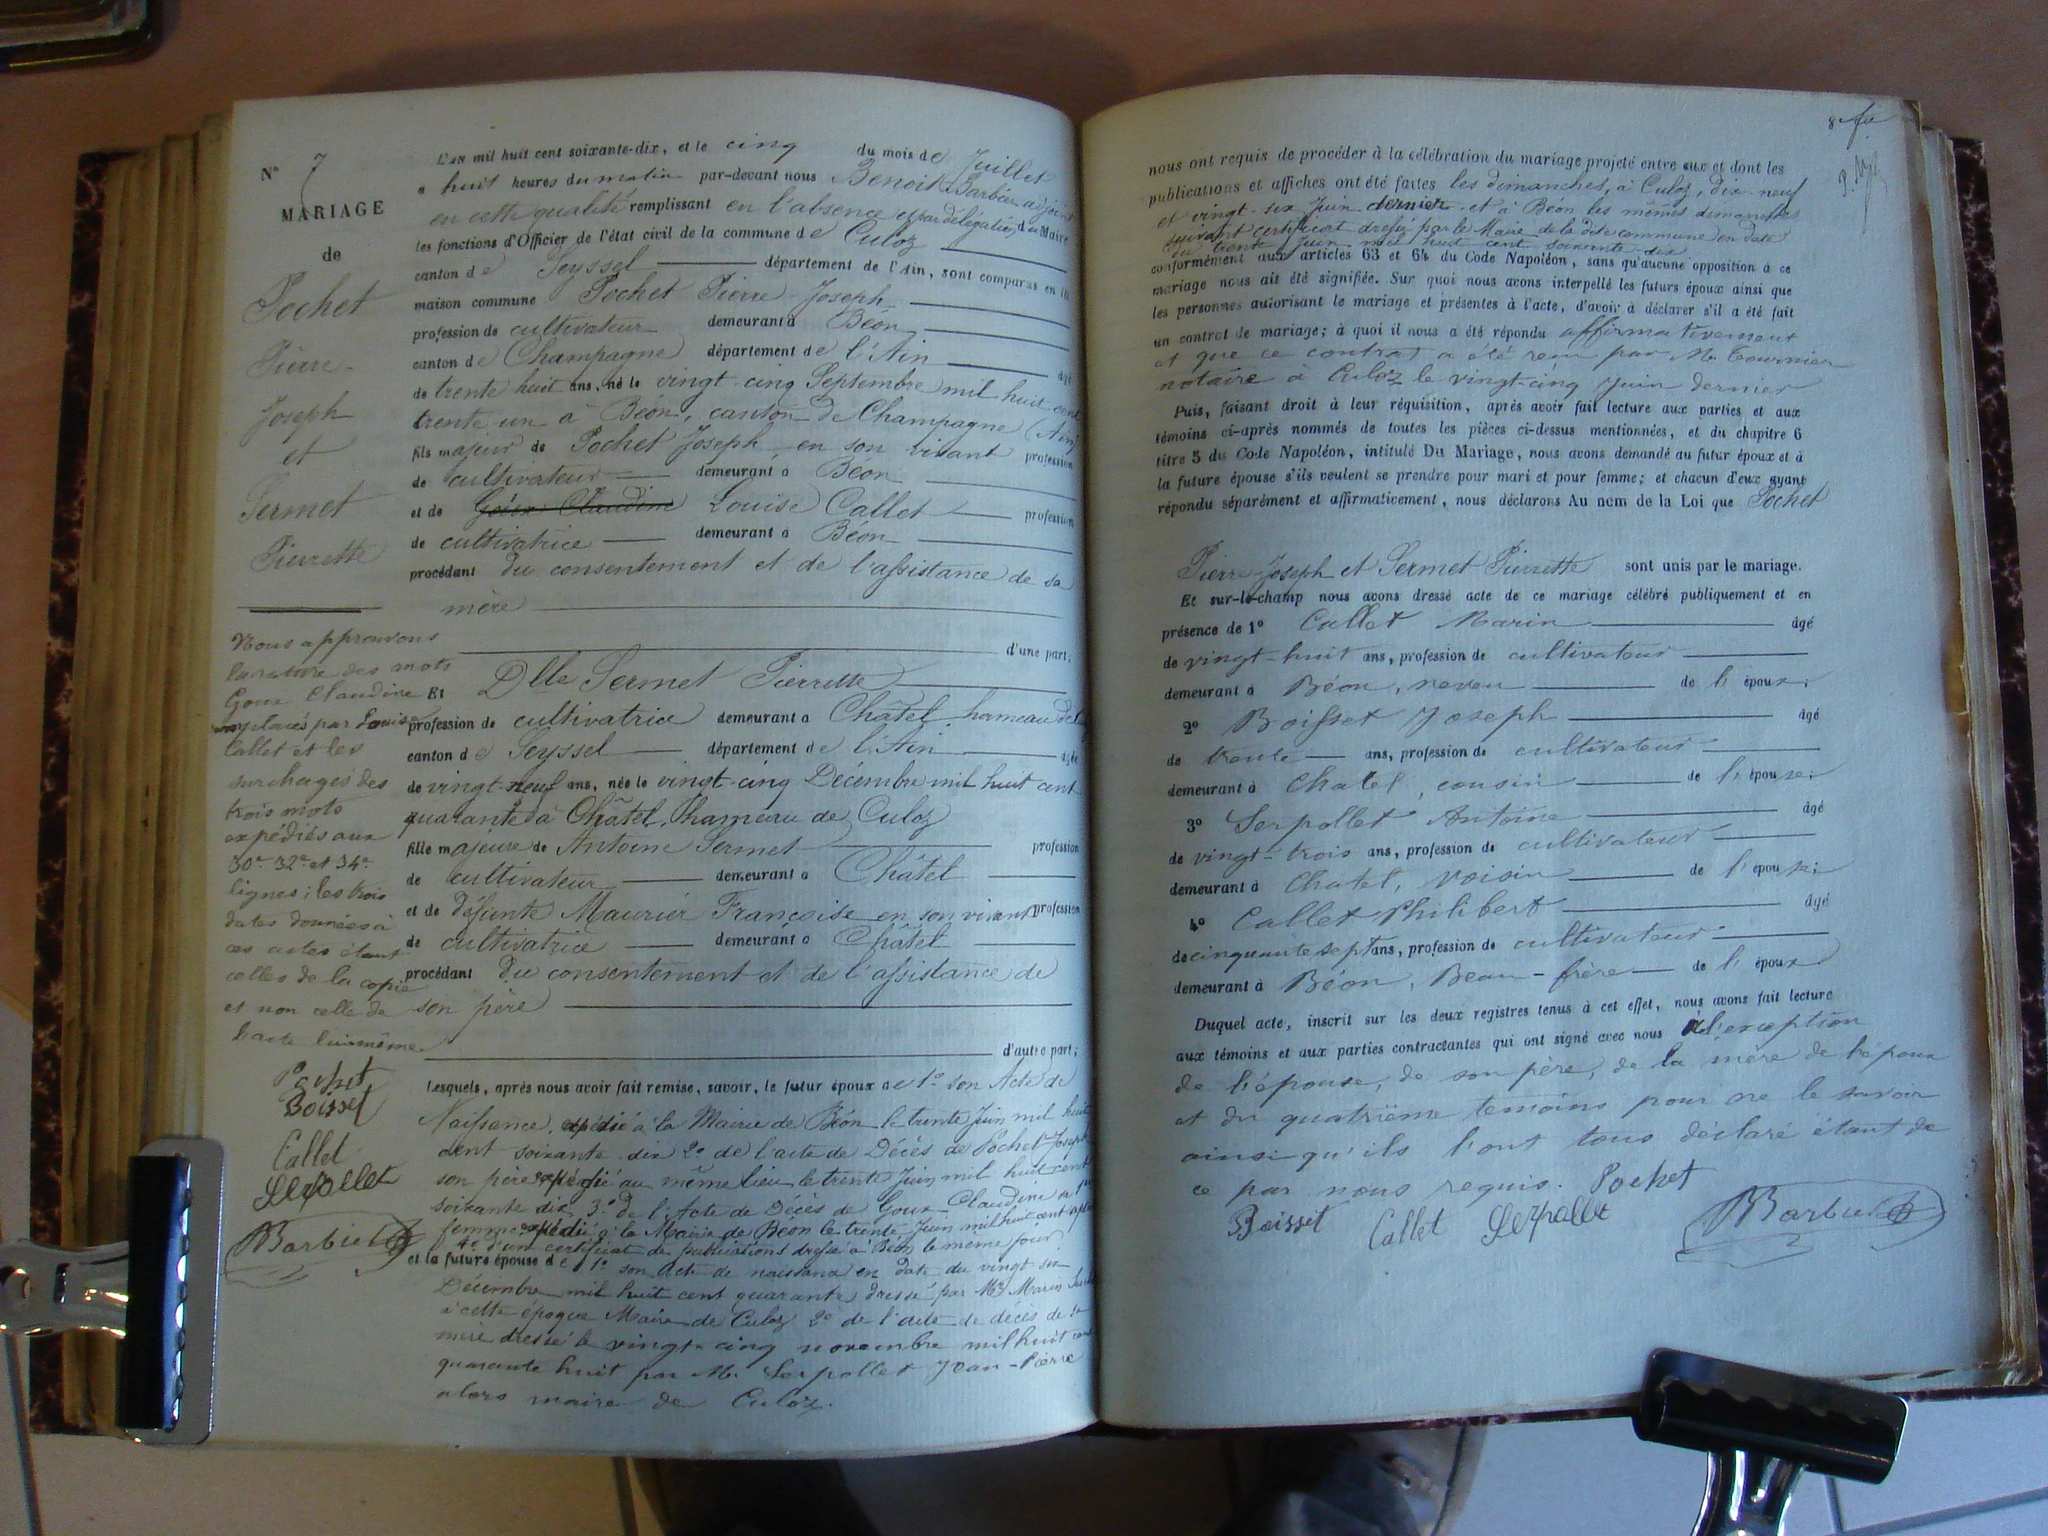 N° 7
MARIAGE
de
Pochet
Pierre-
Joseph
et
Sermet
Pierrette
Nous approuvons
la rature des mots
Goux Claudine
remplacés par Louise
Callet et les
surcharges des
trois mots
expédiés aux
30e 32e et 34e
lignes; les trois
dates données à
ces actes étant
celles de la copie
et non celle de
l'acte lui même
Pochet
Boisset
Callet
Serpollet
Barbier
L'an mil huit cent soixante-dix, et le cinq du mois de Juillet
à huit heures du matin par-devant nous Benoit Barbier adjoint
en cette qualité remplissant en l'absence et par délégation du Maire
les fonctions d'Officier de l'état civil de la commune de Culoz
canton de Seyssel département de l'Ain, sont comparus en la
maison commune Pochet Pierre Joseph
profession de cultivateur demeurant à Béon
canton de Champagne département de l'Ain âgé
de trente huit ans, né le vingt-cinq Septembre mil huit cent
trente un à Béon, canton de Champagne (Ain)
fils majeur de Pochet Joseph en son vivant profession
de cultivateur demeurant à Béon
et de Goux Claudine Louise Callet profession
de cultivatrice demeurant à Béon
procédant du consentement et de l'assistance de sa
mère
d'une part,
Et Dlle Sermet Pierrette
profession de cultivatrice demeurant à Châtel, hameau de
canton de Seyssel département de l'Ain âgée
de vingt-neuf ans, née le vingt-cinq Décembre mil huit cent
quarante à Châtel, hameau de Culoz
fille majeure de Antoine Sermet profession
de cultivateur demeurant à Châtel
et de défunte Maurier Françoise en son vivant profession
de cultivatrice demeurant à Châtel
procédant du consentement et de l'assistance de
son père
d'autre part;
Lesquels, après nous avoir fait remise, savoir, le futur époux de 1° son Acte de
Naissance, expédié à la Mairie de Béon le trente Juin mil huit
cent soixante dix 2° de l'acte de Décès de Pochet Joseph
son père expédié au même lieu le trente Juin mil huit cent
soixante dix 3° de l'Acte de Décès de Goux Claudine sa 1ère
femme expédié à la Mairie de Béon le trente Juin mil huit cent
4° d'un certificat de publications dressé à Béon le même jour
et la future épouse de 1° son acte de naissance en date du vingt six
Décembre mil huit cent quarante dressé par Mr Marin
à cette époque Maire de Culoz 2° de l'acte de décès de sa
mère dressé le vingt-cinq novembre mil huit cent
quarante huit par M. Serpollet Jean-Pierre
alors maire de Culoz.
8
nous ont requis de procéder à la célébration du mariage projeté entre eux et dont les
publications et affiches ont été faites les dimanches, à Culoz, dix-neuf
et vingt-six Juin dernier et à Béon les mêmes dimanches
suivant certificat dressé par le Maire de la dite commune en date
du trente Juin mil huit cent soixante dix
conformément aux articles 63 et 64 du Code Napoléon, sans qu'aucune opposition à ce
mariage nous ait été signifiée. Sur quoi nous avons interpellé les futurs époux ainsi que
les personnes autorisant le mariage et présentes à l'acte, d'avoir à déclarer s'il a été fait
un contrat de mariage; à quoi il nous a été répondu affirmativement
et que ce contrat a été reçu par Me Tournier
notaire à Culoz le vingt-cinq Juin dernier
Puis, faisant droit à leur réquisition, après avoir fait lecture aux parties et aux
témoins ci-après nommés de toutes les pièces ci-dessus mentionnées, et du chapitre 6
titre 5 du Code Napoléon, intitulé Du Mariage, nous avons demandé au futur époux et à
la future épouse s'ils veulent se prendre pour mari et pour femme; et chacun d'eux ayant
répondu séparément et affirmativement, nous déclarons Au nom de la Loi que Pochet
Pierre Joseph et Sermet Pierrette sont unis par le mariage.
Et sur-le-champ nous avons dressé acte de ce mariage célébré publiquement et en
présence de 1° Callet Marin âgé
de vingt-huit ans, profession de cultivateur
demeurant à Béon, neveu de l'époux;
2° Boisset Joseph âgé
de trente ans, profession de cultivateur
demeurant à Chatel, cousin de l'épouse;
3° Serpollet Antoine âgé
de vingt-trois ans, profession de cultivateur
demeurant à Chatel, voisin de l'épouse;
4° Callet Philibert âgé
de cinquante sept ans, profession de cultivateur
demeurant à Béon, Beau-frère de l'époux
Duquel acte, inscrit sur les deux registres tenus à cet effet, nous avons fait lecture
aux témoins et aux parties contractantes qui ont signé avec nous à l'exception
de l'épouse, de son père, de la mère de l'époux
et du quatrième temoins pour ne le savoir
ainsi qu'ils l'ont tous déclaré étant de
ce par nous requis. Pochet
Boisset Callet Serpollet Barbier